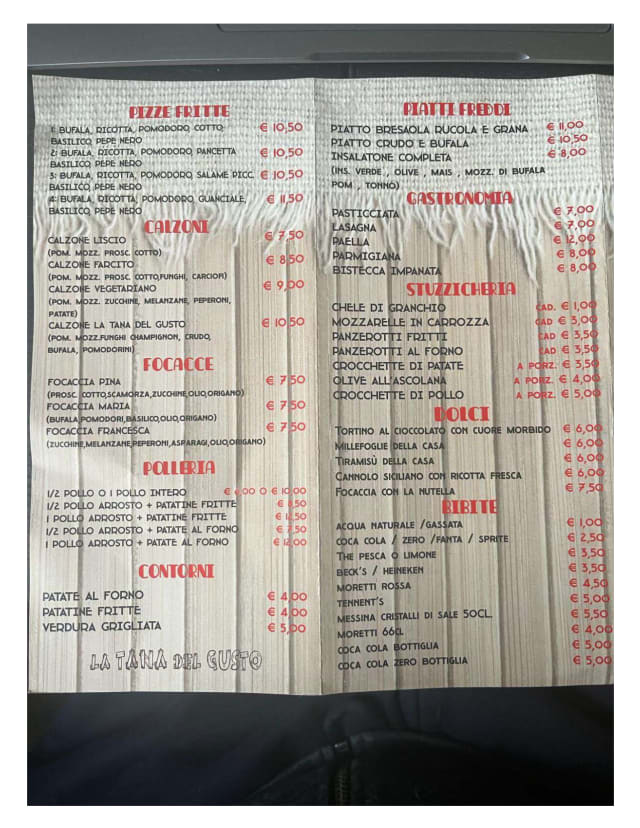 PIZZE FRITTE
1: BUFALA, RICOTTA, POMODORO, COTTO, € 10,50
BASILICO, PEPE NERO
2: BUFALA, RICOTTA, POMODORO, PANCETTA € 10,50
BASILICO, PEPE NERO
3: BUFALA, RICOTTA, POMODORO, SALAME PICC. € 10,50
BASILICO, PEPE NERO
4: BUFALA, RICOTTA, POMODORO, GUANCIALE, € 11,50
BASILICO, PEPE NERO
CALZONI
CALZONE LISCIO € 7,50
(POM. MOZZ. PROSC. COTTO)
CALZONE FARCITO € 8,50
(POM. MOZZ. PROSC. COTTO,FUNGHI, CARCIOFI)
CALZONE VEGETARIANO € 9,00
(POM. MOZZ. ZUCCHINE, MELANZANE, PEPERONI,
PATATE)
CALZONE LA TANA DEL GUSTO € 10,50
(POM. MOZZ.FUNGHI CHAMPIGNON, CRUDO,
BUFALA, POMODORINI)
FOCACCE
FOCACCIA PINA € 7,50
(PROSC. COTTO,SCAMORZA,ZUCCHINE,OLIO,ORIGANO)
FOCACCIA MARIA € 7,50
(BUFALA,POMODORI,BASILICO,OLIO,ORIGANO)
FOCACCIA FRANCESCA € 7,50
(ZUCCHINE,MELANZANE,PEPERONI,ASPARAGI,OLIO,ORIGANO)
POLLERIA
1/2 POLLO O 1 POLLO INTERO € 6,00 O € 10,00
1/2 POLLO ARROSTO + PATATINE FRITTE € 8,50
1 POLLO ARROSTO + PATATINE FRITTE € 12,50
1/2 POLLO ARROSTO + PATATE AL FORNO € 7,50
1 POLLO ARROSTO + PATATE AL FORNO € 12,00
CONTORNI
PATATE AL FORNO € 4,00
PATATINE FRITTE € 4,00
VERDURA GRIGLIATA € 5,00
LA TANA DEL GUSTO
PIATTI FREDDI
PIATTO BRESAOLA RUCOLA E GRANA € 11,00
PIATTO CRUDO E BUFALA € 10,50
INSALATONE COMPLETA € 8,00
(INS. VERDE , OLIVE , MAIS , MOZZ. DI BUFALA
POM , TONNO)
GASTRONOMIA
PASTICCIATA € 7,00
LASAGNA € 7,00
PAELLA € 12,00
PARMIGIANA € 8,00
BISTECCA IMPANATA € 8,00
STUZZICHERIA
CHELE DI GRANCHIO CAD. € 1,00
MOZZARELLE IN CARROZZA CAD € 3,00
PANZEROTTI FRITTI CAD € 3,50
PANZEROTTI AL FORNO CAD € 3,50
CROCCHETTE DI PATATE A PORZ. € 3,50
OLIVE ALL'ASCOLANA A PORZ. € 4,00
CROCCHETTE DI POLLO A PORZ. € 5,00
DOLCI
TORTINO AL CIOCCOLATO CON CUORE MORBIDO € 6,00
MILLEFOGLIE DELLA CASA € 6,00
TIRAMISÙ DELLA CASA € 6,00
CANNOLO SICILIANO CON RICOTTA FRESCA € 6,00
FOCACCIA CON LA NUTELLA € 7,50
BIBITE
ACQUA NATURALE /GASSATA € 1,00
COCA COLA / ZERO /FANTA / SPRITE € 2,50
THE PESCA O LIMONE € 3,50
BECK'S / HEINEKEN € 3,50
MORETTI ROSSA € 4,50
TENNENT'S € 5,00
MESSINA CRISTALLI DI SALE 50CL. € 5,50
MORETTI 66CL € 4,00
COCA COLA BOTTIGLIA € 5,00
COCA COLA ZERO BOTTIGLIA € 5,00